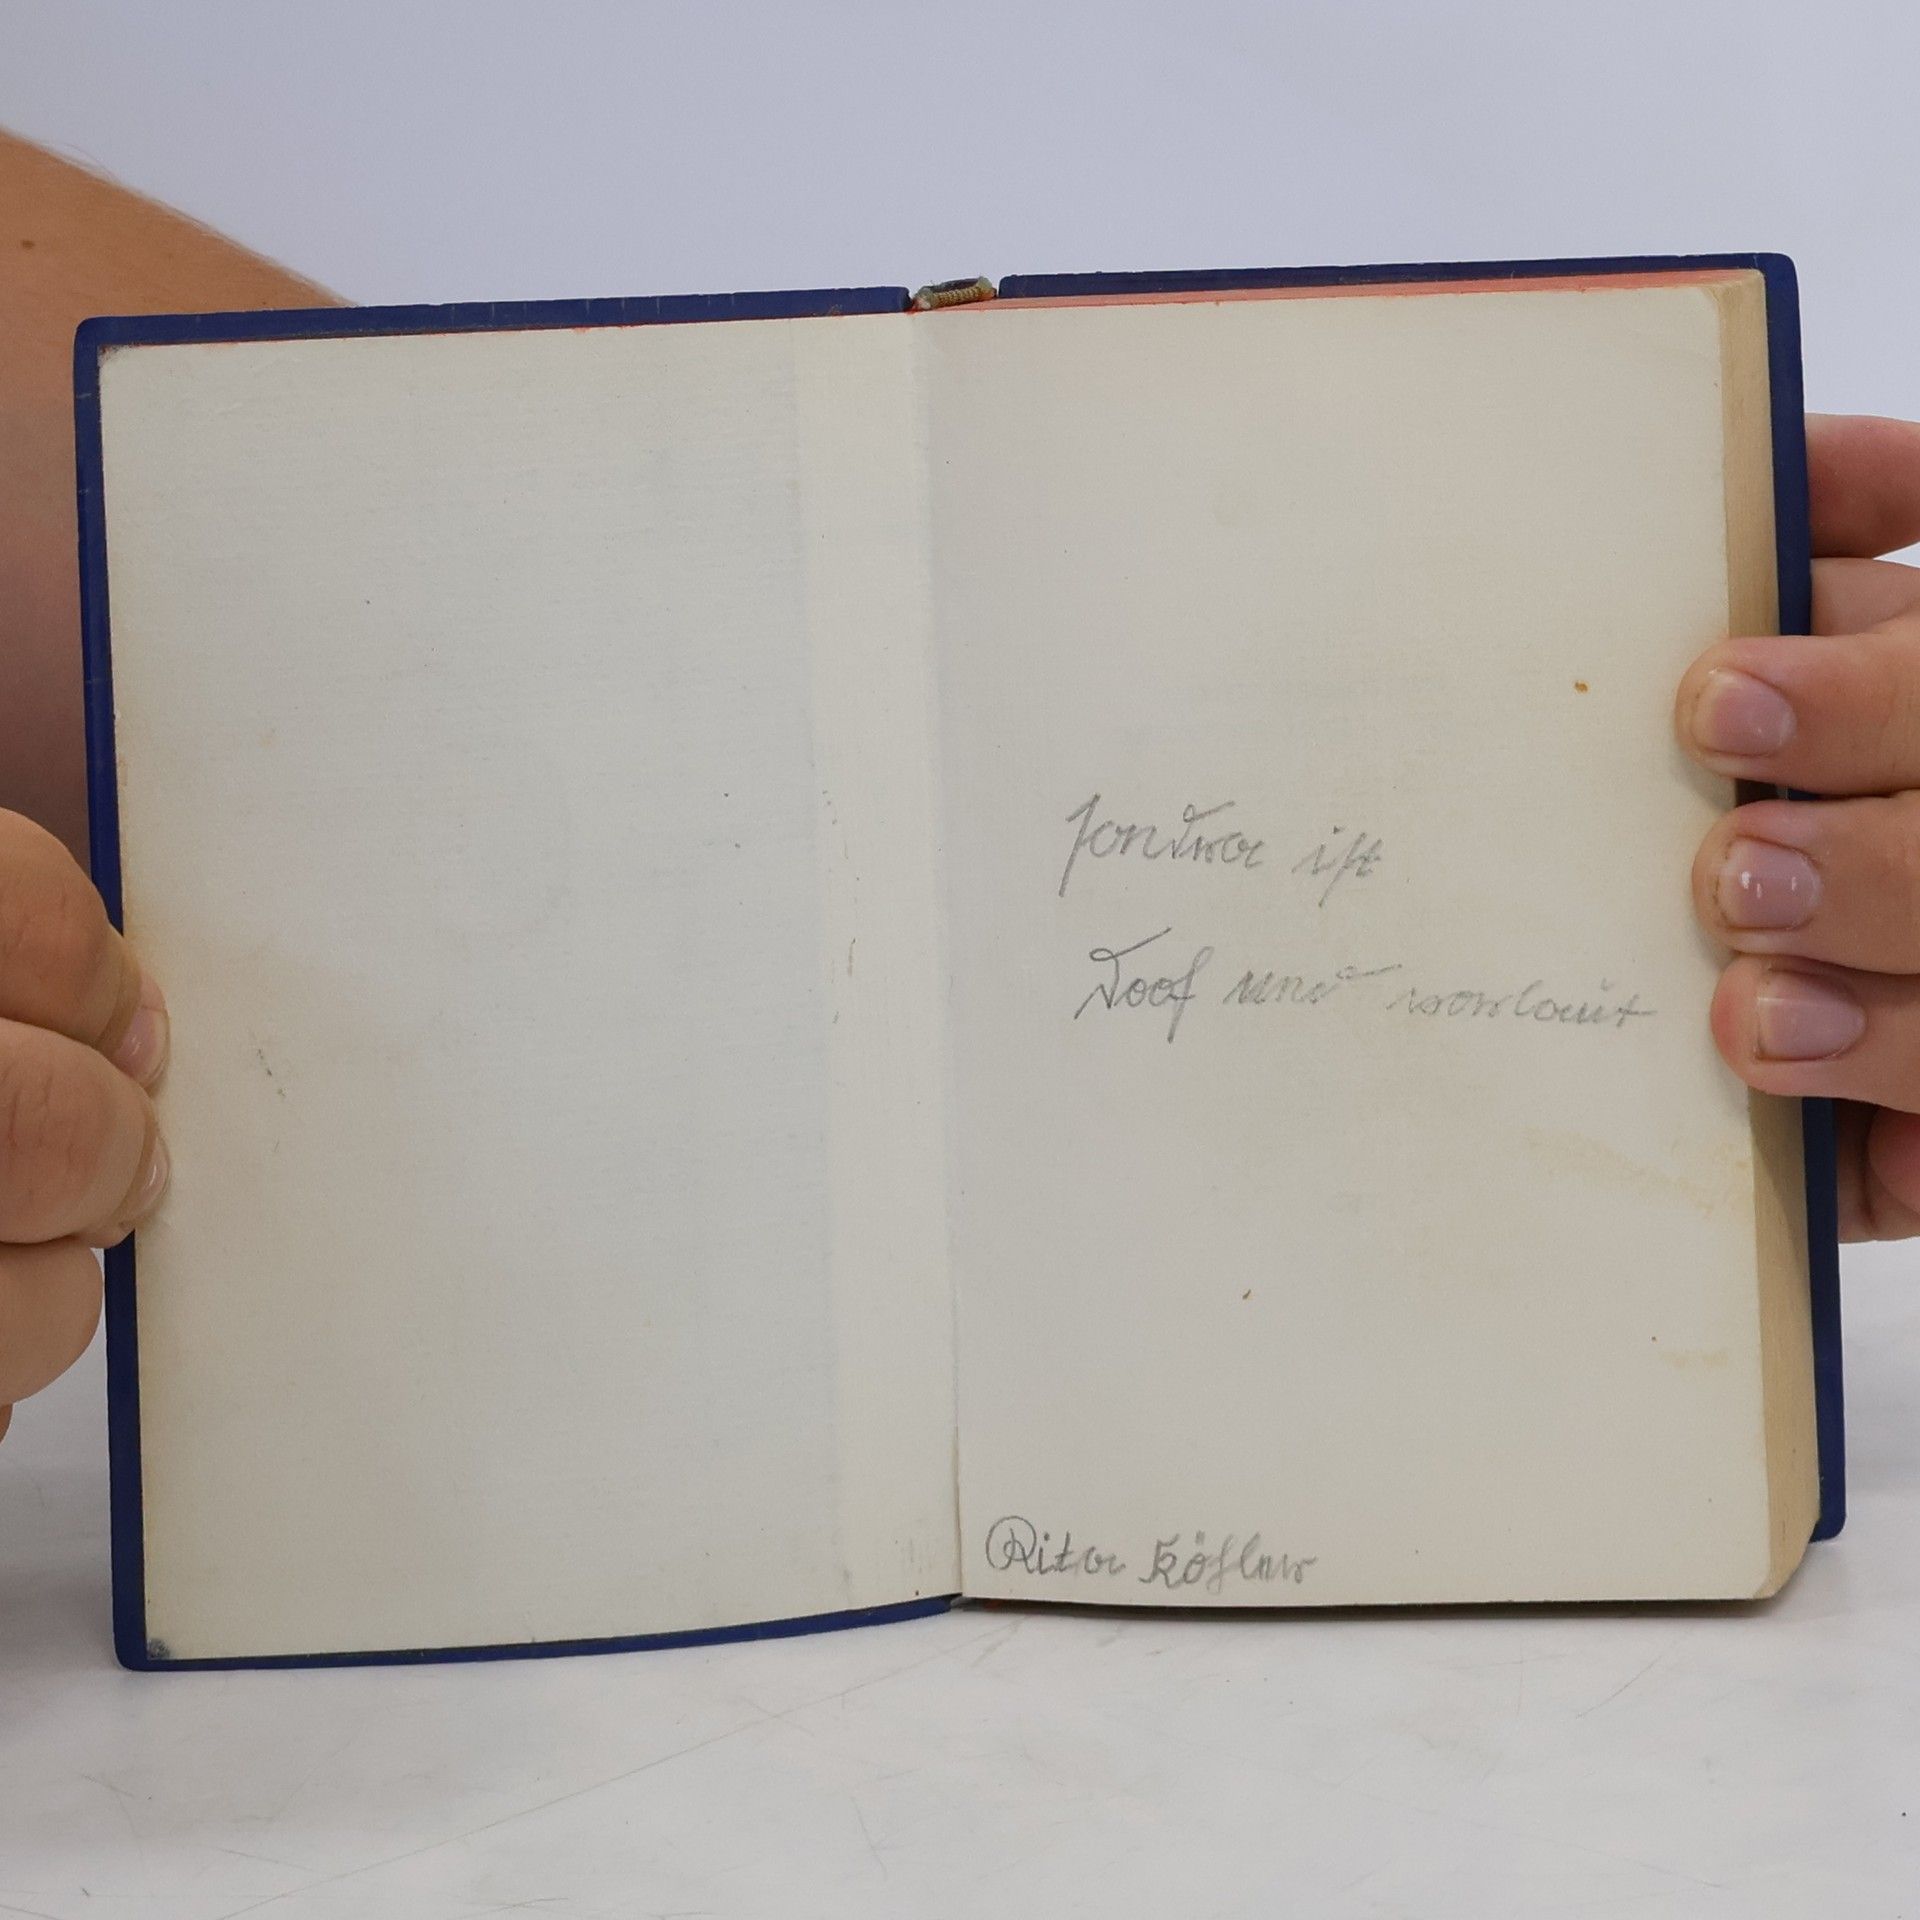 sandra ist
doof und vorlaut
Rita Köhler